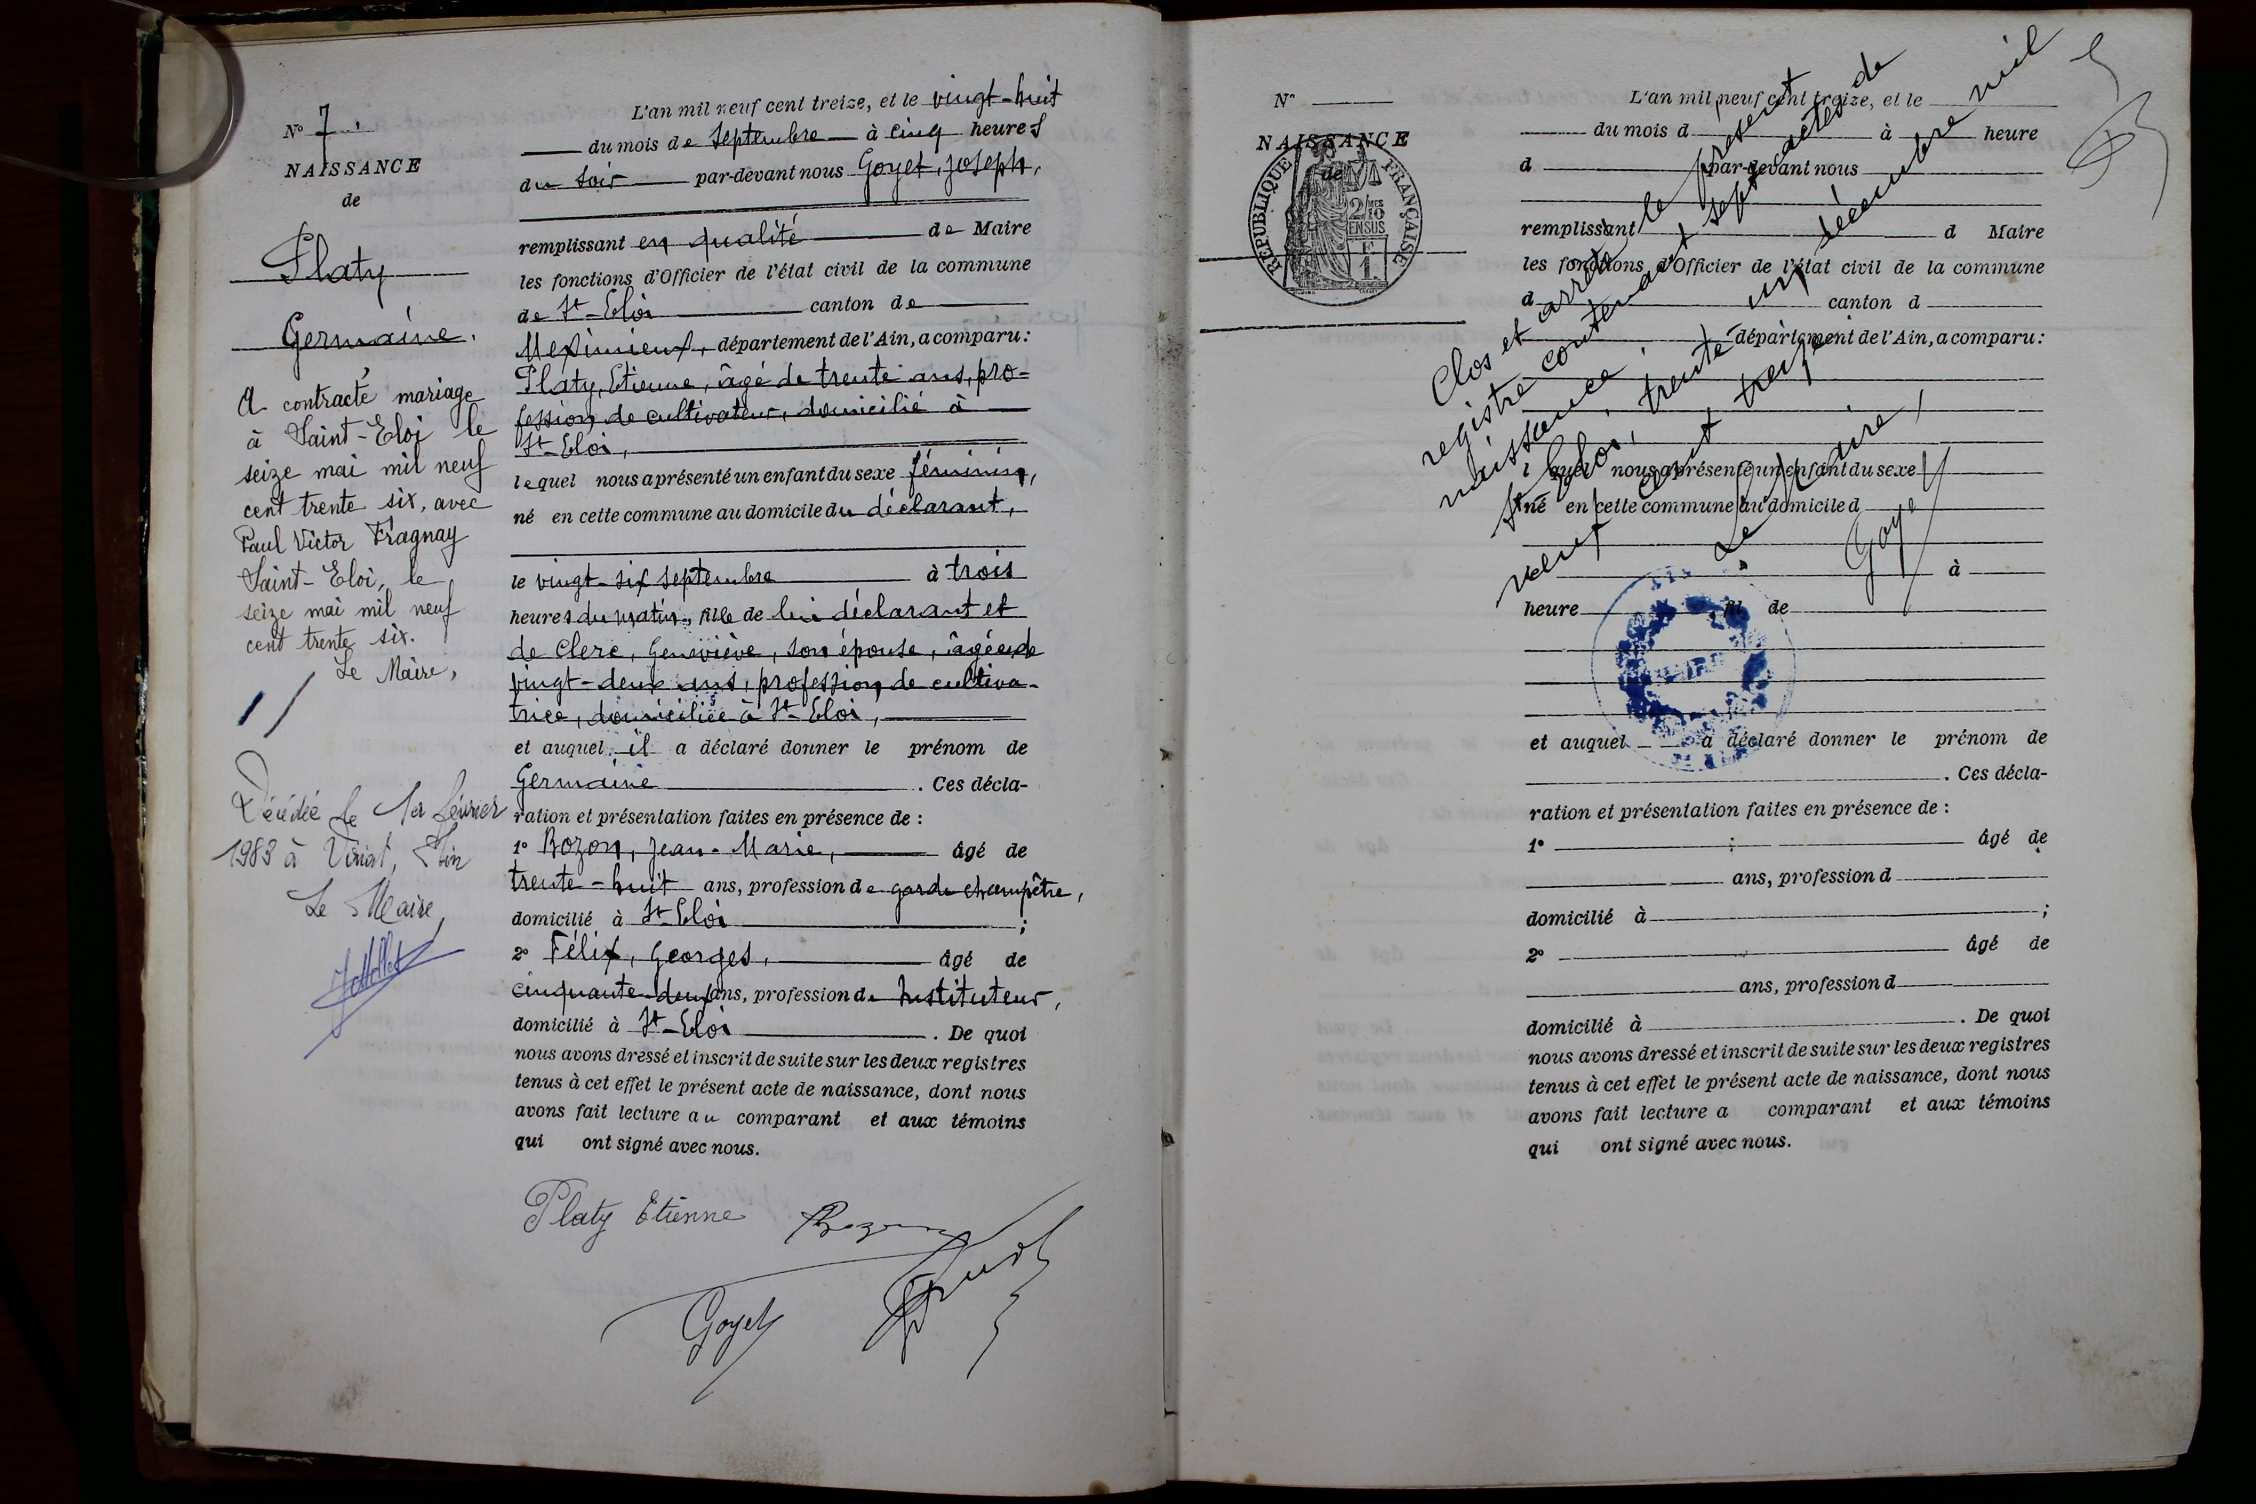 N° 7
NAISSANCE
de
Platy
Germaine.
A contracté mariage
à Saint-Eloi le
seize mai mil neuf
cent trente six, avec
Paul Victor Fragnay
Saint-Eloi, le
seize mai mil neuf
cent trente six.
Le Maire,
Décédée le 1er février
1983 à Viriat, Ain
Le Maire,
L'an mil neuf cent treize, et le vingt-huit
du mois de septembre à cinq heures
du soir par-devant nous Goyet, Joseph,
remplissant en qualité de Maire
les fonctions d'Officier de l'état civil de la commune
de St-Eloi canton de
Meximieux, département de l'Ain, a comparu:
Platy, Etienne, âgé de trente ans, pro-
fession de cultivateur, domicilié à
St-Eloi,
lequel nous a présenté un enfant du sexe féminin,
né en cette commune au domicile du déclarant,
le vingt-six septembre à trois
heures du matin, fille de lui déclarant et
de Clerc, Geneviève, son épouse, âgée de
vingt-deux ans, profession de cultiva-
trice, domiciliée à St-Eloi,
et auquel il a déclaré donner le prénom de
Germaine. Ces décla-
ration et présentation faites en présence de :
1° Bozon, Jean-Marie, âgé de
trente-huit ans, profession de garde champêtre,
domicilié à St-Eloi ;
2° Félix, Georges, âgé de
cinquante-deux ans, profession de Instituteur,
domicilié à St-Eloi. De quoi
nous avons dressé et inscrit de suite sur les deux registres
tenus à cet effet le présent acte de naissance, dont nous
avons fait lecture au comparant et aux témoins
qui ont signé avec nous.
Platy Etienne Bozon
Goyet
N°
NAISSANCE
de
RÉPUBLIQUE FRANÇAISE
2/10MES
EN SUS
F
1
L'an mil neuf cent treize, et le
du mois d à heure
d par-devant nous
remplissant d Maire
les fonctions d'Officier de l'état civil de la commune
d canton d
département de l'Ain, a comparu:
quel nous a présenté un enfant du sexe
né en cette commune au domicile d
le à
heure fil de
et auquel a déclaré donner le prénom de
. Ces décla-
ration et présentation faites en présence de :
1° ; âgé de
ans, profession d
domicilié à ;
2° âgé de
ans, profession d
domicilié à . De quoi
nous avons dressé et inscrit de suite sur les deux registres
tenus à cet effet le présent acte de naissance, dont nous
avons fait lecture a comparant et aux témoins
qui ont signé avec nous.
Clos et arrêté le présent
registre contenant sept actes de
naissance.
St-Eloi, trente un décembre mil
neuf cent treize
Le Maire,
Goyet